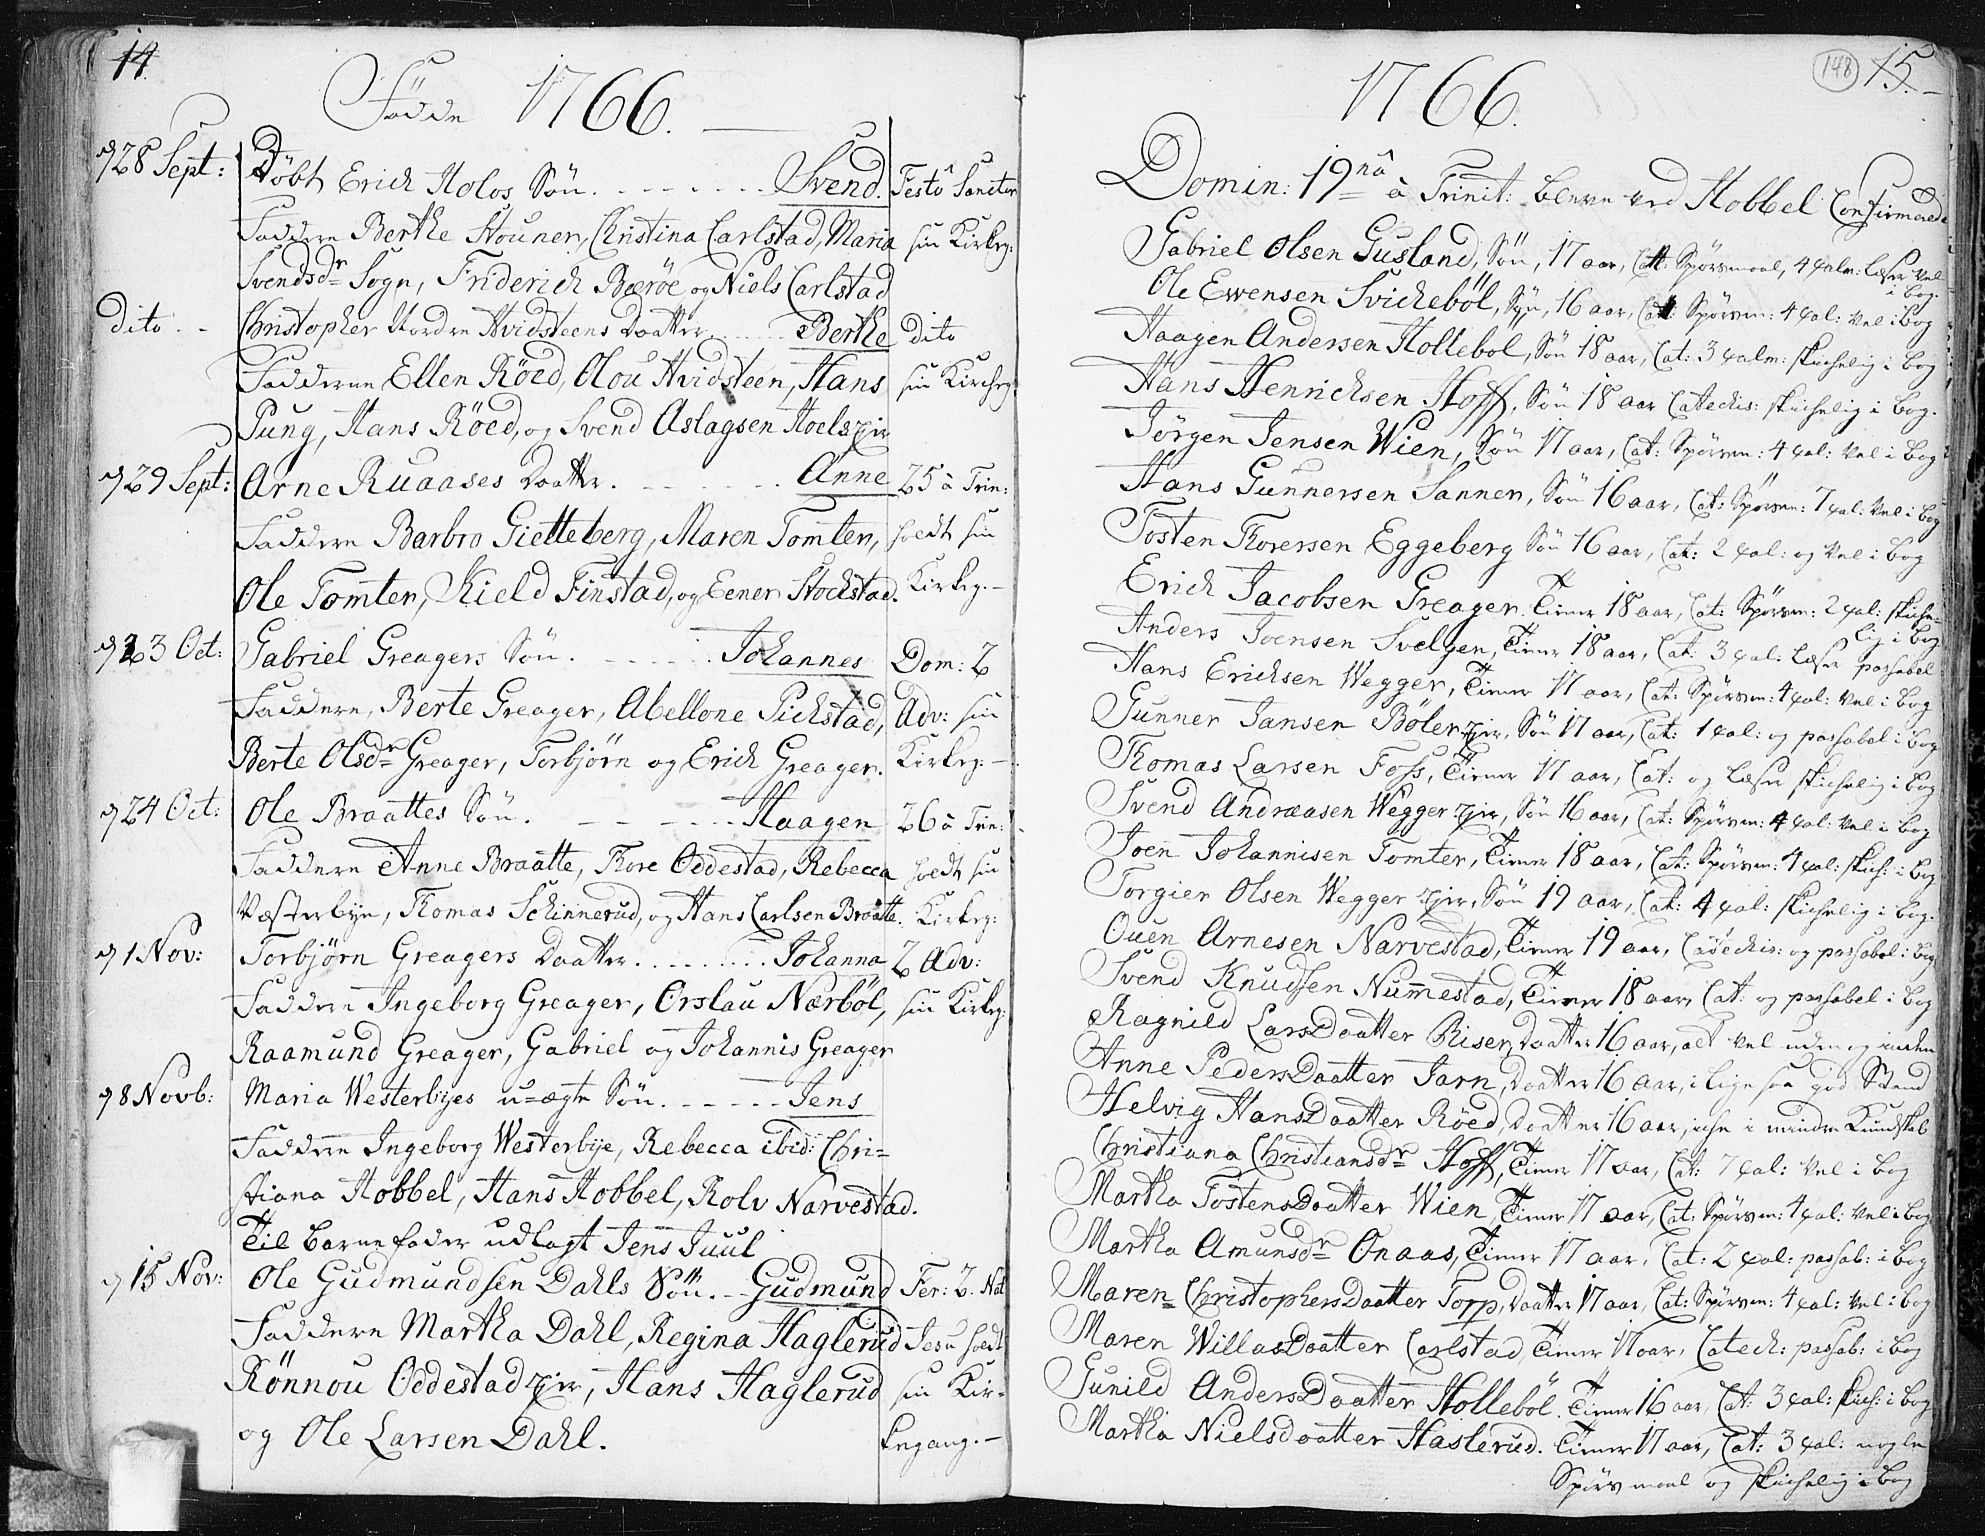 14.
Födde 1766.
28 Sept: Döbt Erich Holos Sön. Svend. Festô Sanctor
Faddere Berthe Houner, Christina Carlstad, Maria sin Kirkeg:
Svendsdr Sogn, Friderich Bæröe og Niels Carlstad
Dito. Christopher Nordre Hvidsteens Daatter Berthe Dito
Fadderne Ellen Röed, Olou Hvidsteen, Hans sin Kircheg:
Pung, Hans Röed, og Svend Aslagsen Hoels
29 Sept: Arne Ruaases Daatter. Anne 25 à Trin:
Faddere Barbro Gietteberg, Maren Tomter, holdt sin
Ole Tomter, Kield Finstad, og Eener Stochstad. Kirkeg.
23 Oct: Gabriel Greagers Sön. Johannes Dom: 2
Faddere, Berte Greager, Abellone Pickstad, Adv: sin
Berte Olsdr Greager, Torbjörn og Erich Greager. Kirkeg:
24 Oct: Ole Braattes Sön. Haagen 26 à Trin:
Faddere Anne Braatte, Thore Oddestad, Rebecca holdt sin
Vesterbye, Thomas Schinnerud, og Hans Carlsen Braatte. Kirkeg:
1 Nov: Torbjörn Greagers Daatter. Johanna 2 Adv:
Faddere Ingeborg Greager, Orslau Nærböl, sin Kirkeg:
Raamund Greager, Gabriel og Johannis Greager
8 Novb: Maria Westerbyes u=ægte Sön. Jens
Faddere Ingeborg Westerbye, Rebecca ibid: Chri=
stiana Hobbel, Hans Hobbel, Rolv Narvestad.
Til Barnefader udlagt Jens Juul
15 Nov: Ole Gudmundsen Dahls Sön. Gudmund Fer: 2. Nat
Faddere Martha Dahl, Regina Haglerud Jesu holdt
Rönnou Oddestad, Hans Haglerud sin Kir=
og Ole Larsen Dahl. kegang.
1766.
148
15.
Domin: 19nâ à Trinit: bleve ved Hobbel Confirmerede
Gabriel Olsen Gusland, Sön, 17 aar, Cat: Spörsmaal, 4 psalm: læser vel
i bog.
Ole Ewensen Svicheböl, Sön, 16 aar, Cat: Spörsm: 4 psal: vel i bog
Haagen Andersen Holleböl, Sön 18 aar, Cat: 3 psalm: skichelig i bog
Hans Henrichsen Hoff, Sön 18 aar Catechis: skichelig i bog.
Jörgen Jensen Wien, Sön 17 aar, Cat: Spörsm: 4 psal: vel i bog
Hans Gunnersen Sanner, Sön 16 aar, Cat: Spörsm: 7 psal: vel i bog
Tosten Thoresen Eggeberg Sön 16 aar, Cat: 2 psal: og vel i bog
Erich Jacobsen Greager. Tiener 18 aar, Cat: Spörsm: 2 psal: skiche=
lig i bog
Anders Joensen Svelgen, Tiener 18 aar, Cat: 3 psal: læser passabel
Hans Erichsen Wegger, Tiener 17 aar, Cat: Spörsm: 4 psal: vel i bog
Gunner Jansen Böler, Sön 17 aar, Cat: 1 psal: og passabel i bog
Thomas Larsen Foss, Tiener 17 aar, Cat: og læser skichelig i bog
Svend Andreasen Wegger, Sön 16 aar, Cat: Spörsm: 4 psal: vel i bog
Joen Johannisen Tomter, Tiener 18 aar, Cat: Spörsm: 4 psal: skich: i bog
Torgier Olsen Wegger, Sön 19 aar, Cat: 4 psal: skichelig i bog.
Ouen Arnesen Narvestad, Tiener 19 aar, Catechis: og passabel i bog
Svend Knudsen Nummestad, Tiener 18 aar, Cat: og passabel i bog
Ragnild LarsDaatter Riser, Daatter 16 aar, alt vel uden og inden
Anne PedersDaatter Jarn, Daatter 16 aar, i lige saa god Stand
Helvig HansDaatter Röed, Daatter 16 aar, iche i mindre Kundskab
Christiana Christiansdr Hoff, Tiener 17 aar, Cat: 7 psal: vel i bog
Martha TostensDaatter Wien, Tiener 17 aar, Cat: Spörsm: 4 psal: vel i bog
Martha Amunsdr Onaas, Tiener 17 aar, Cat: 2 psal: passab: i bog
Maren ChristophersDaatter Torp, Daatter 17 aar, Cat: Spörsm: 4 psal: vel i bog
Maren WillasDaatter Carlstad Tiener 17 aar, Catech: passab: i bog
Gunild AndersDaatter Holleböl. Tiener 16 aar, Cat: 3 psal: skich: i bog
Martha Nielsdaatter Haslerud. Tiener 17 aar, Cat: 3 psal: nogle
Spörsmaal og skichelig i bog